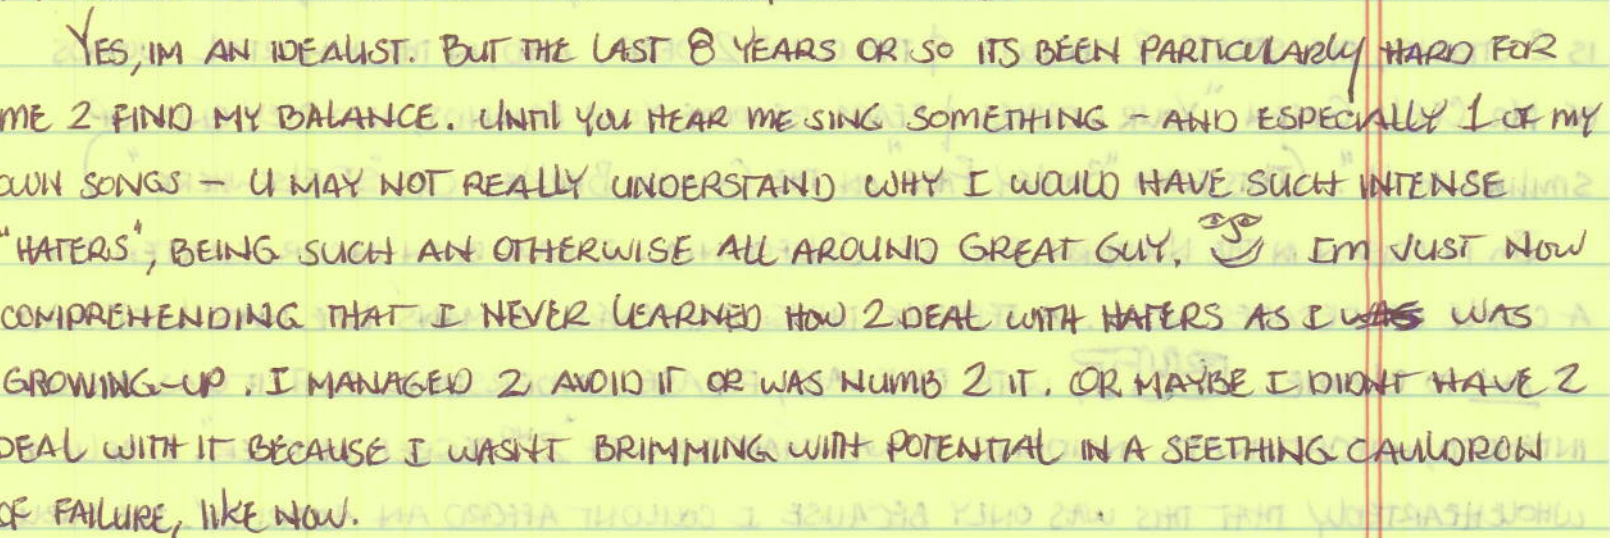 YES, IM AN IDEALIST. BUT THE LAST 8 YEARS OR SO ITS BEEN PARTICULARLY HARD FOR
ME 2 FIND MY BALANCE. UNTIL YOU HEAR ME SING SOMETHING – AND ESPECIALLY 1 OF MY
OWN SONGS – U MAY NOT REALLY UNDERSTAND WHY I WOULD HAVE SUCH INTENSE
"HATERS", BEING SUCH AN OTHERWISE ALL AROUND GREAT GUY. IM JUST NOW
COMPREHENDING THAT I NEVER LEARNED HOW 2 DEAL WITH HATERS AS I WAS WAS
GROWING-UP. I MANAGED 2 AVOID IT OR WAS NUMB 2 IT. OR MAYBE I DIDNT HAVE 2
DEAL WITH IT BECAUSE I WASN'T BRIMMING WITH POTENTIAL IN A SEETHING CAULDRON
OF FAILURE, LIKE NOW.